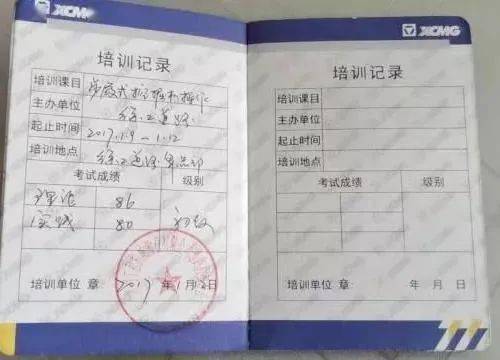 XCMG
培训记录
培训课目
主办单位 徐工道路
起止时间 2017.1.9-1.12
培训地点 徐工道路
考试成绩 级别
理论 86
实践 80 初级
培训单位 章: 2017年1月12日
XCMG
培训记录
培训课目
主办单位
起止时间
培训地点
考试成绩 级别
培训单位 章: 年 月 日